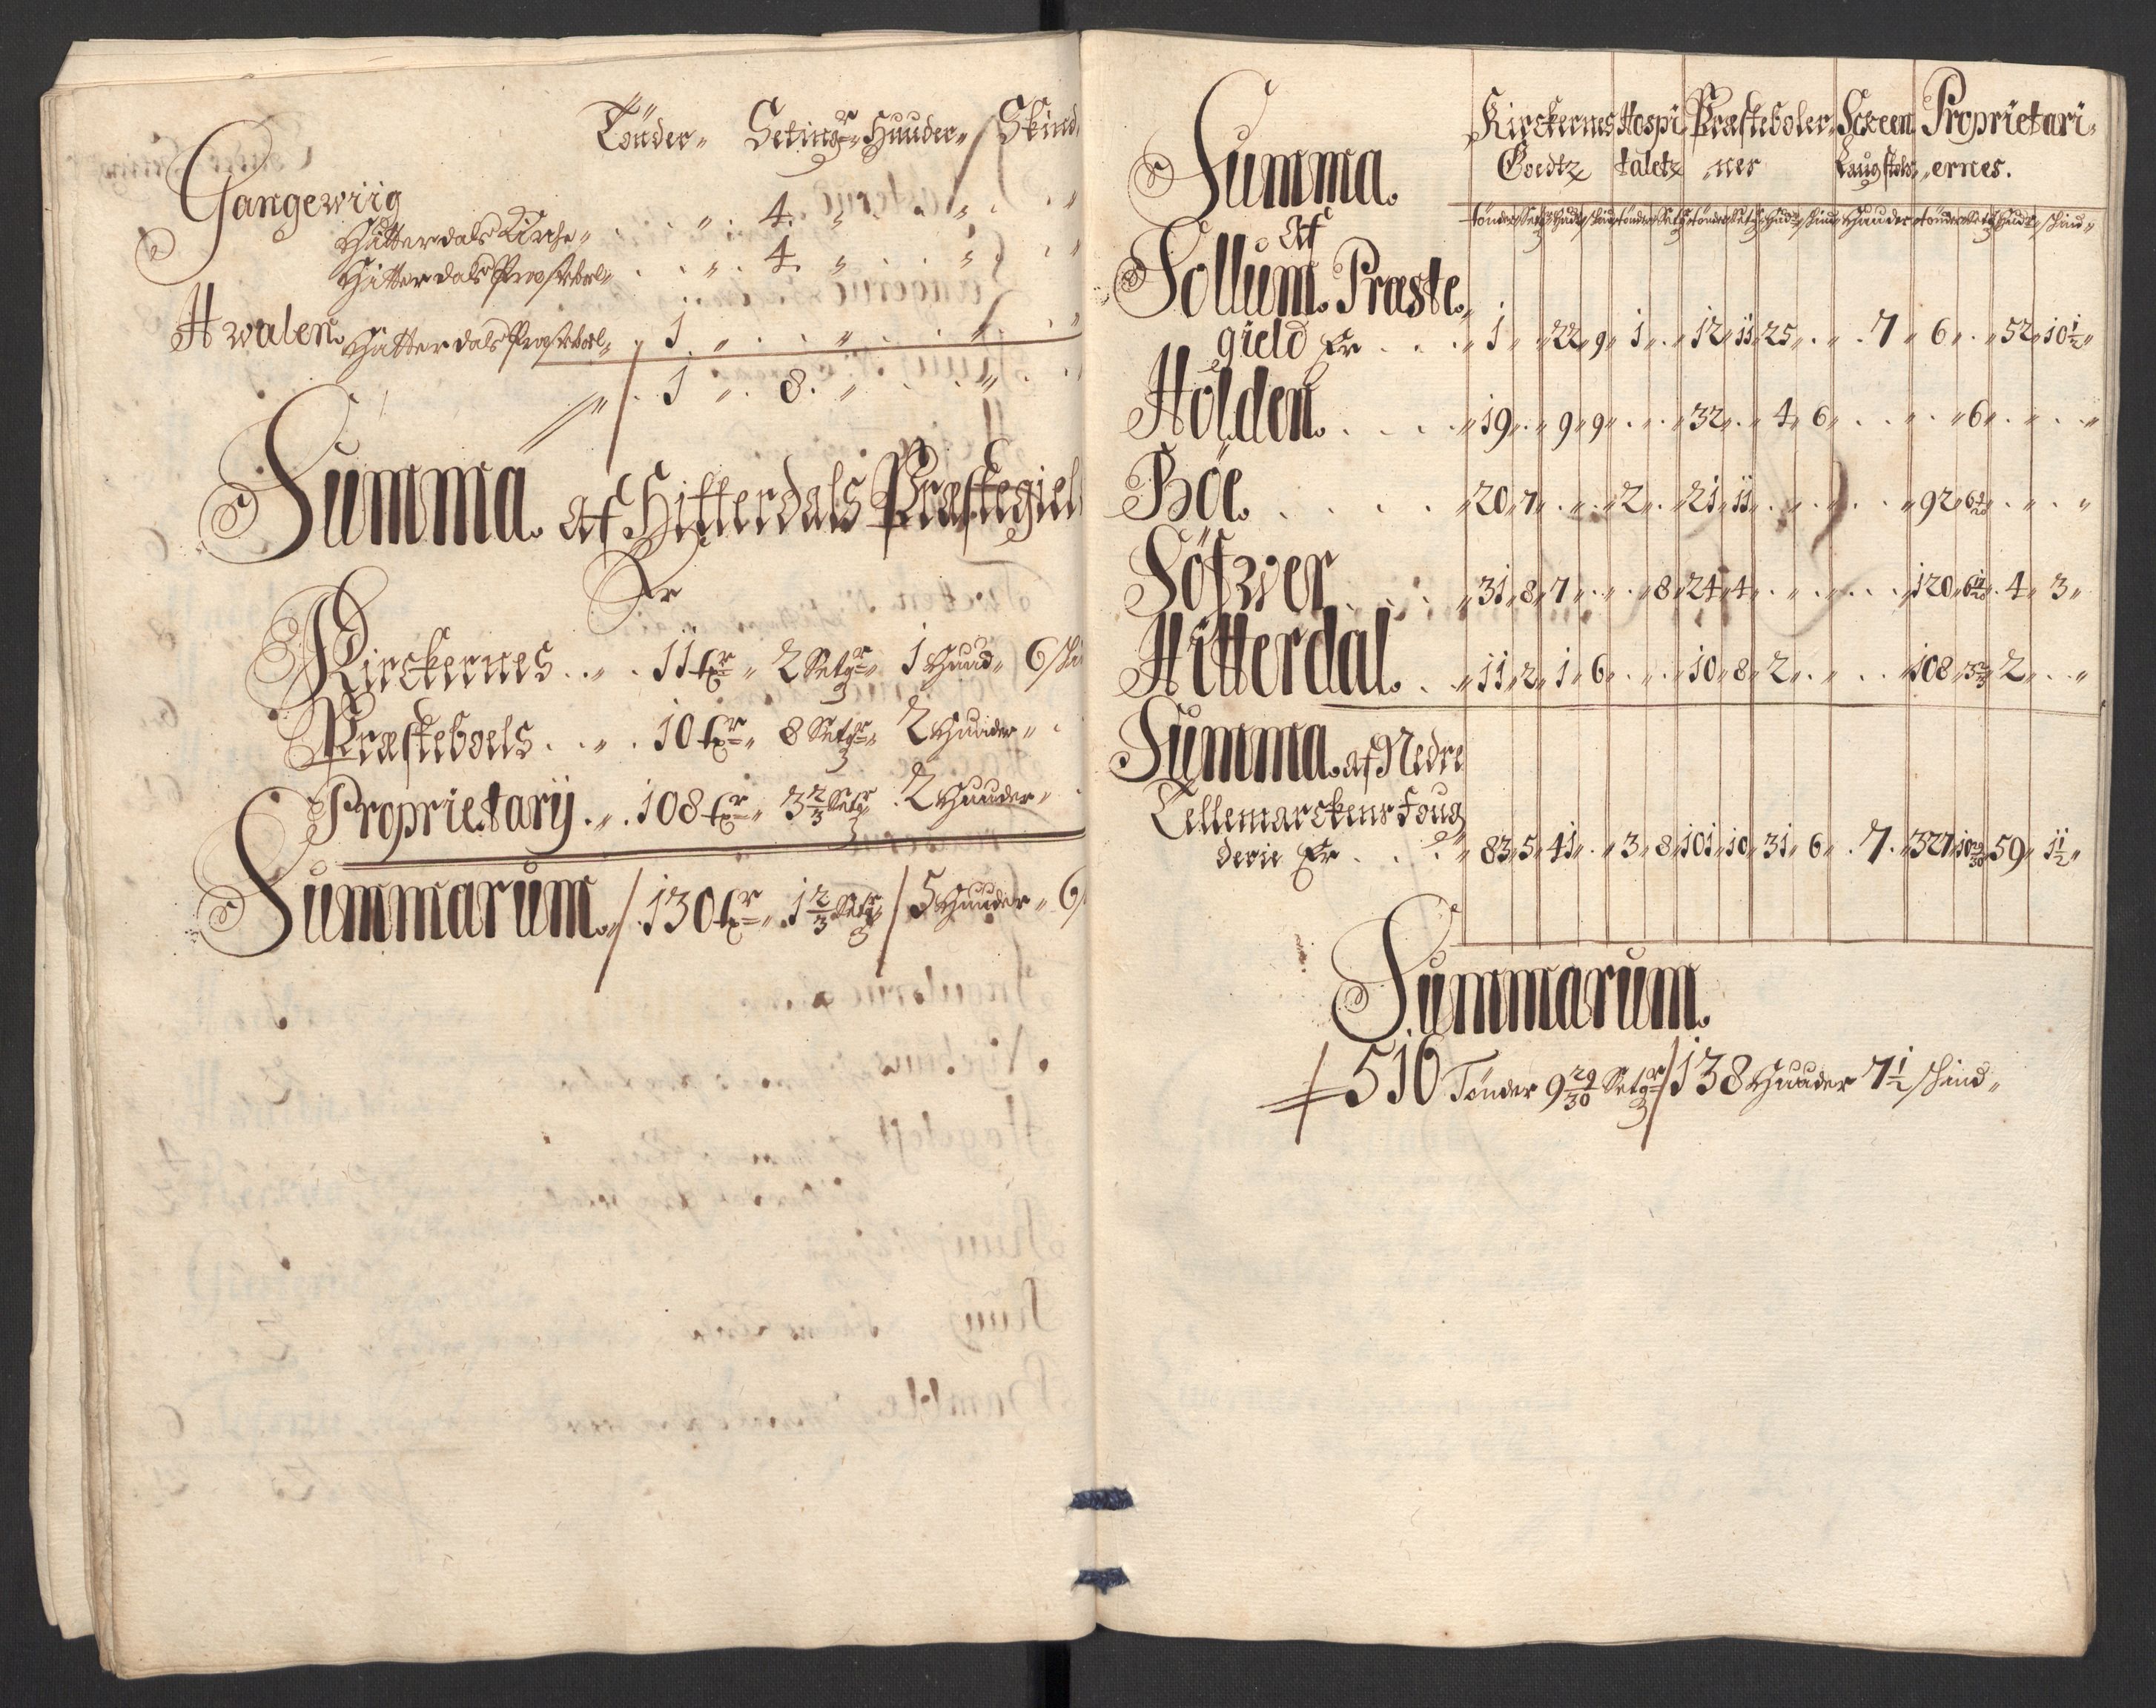 Tönder„ Setingr„ Huuder„ Skind
Gangewiig
Hitterdals Kirche„ . . „ . 4. „ . . „ . . „
Hitterdals Præstebol„ . . „ . 4. „ . . „ . . „
Hwalen. Hitterdals Præstebol„ „ 1. „ . . „ . . „ . . „
1 „. 8. „ . . „
Summa. Af Hitterdals Præstegiel
Er
Kirckernes . . „ . 11 tr„ 2 Setgr„ 1 Huud„ 6 ski
Præsteboels . . „ . 10 tr„ 8 Setgr„ 2 Huuder„ .
Proprietarij . „ . 108 tr„ 3 2/3 Setgr . 2 Huuder„
Summarum. / 130 tr„ 1 2/3 Setgr / 5 Huuder„ 6
Kirckernes Hospi Præsteboler„ Scheen Proprietari„
Summa. Goedtz taletz „nes Laugstols „ernes.
Af tönder Setgr Hud skind tönder Setgr tönder Setgr Hud skind Huuder tönder Setgr Hud skind„
Sollum. Præste„
gield Er . . . „ 1 „ „ 22„ 9„ 1„ . „ 12„ 11„ 25„ . „ . 7 „ 6„ . „ 52„ 10 1/2„
Holden. . . . . „ 19„ . „ 9„ 9„ . „ . „ 32„ . „ 4„ 6„ . . „ . „ 6„ . „ . . „
Böe. . . . . „ 20„ 7„ . „ . „ 2„ . „ 21„ 11„ . „ . „ . . „ 92„ 6 „ . „ . „
Söfwer . . . „ 31„ 8„ 7„ . „ . „ 8„ 24„ 4„ . „ . „ . . „ 120„ 6 „ . 4„ 3„
Hitterdal. . „ 11„ 2„ 1„ 6„ . „ . „ 10„ 8„ 2„ . „ . . „ 108„ 3 2/3„ 2„ . . „
Summa. af Nedre
Tellemarckens Foug
derie Er . . . „ 83„ 5„ 41„ . „ 3„ 8„ 101„ 10„ 31„ 6„ . 7. „ 327„ 10 29/30„ 59„ 1 1/2„
Summarum.
510 Tönder 9 29/30 Setgr / 138 Huuder 7 1/2 skind„